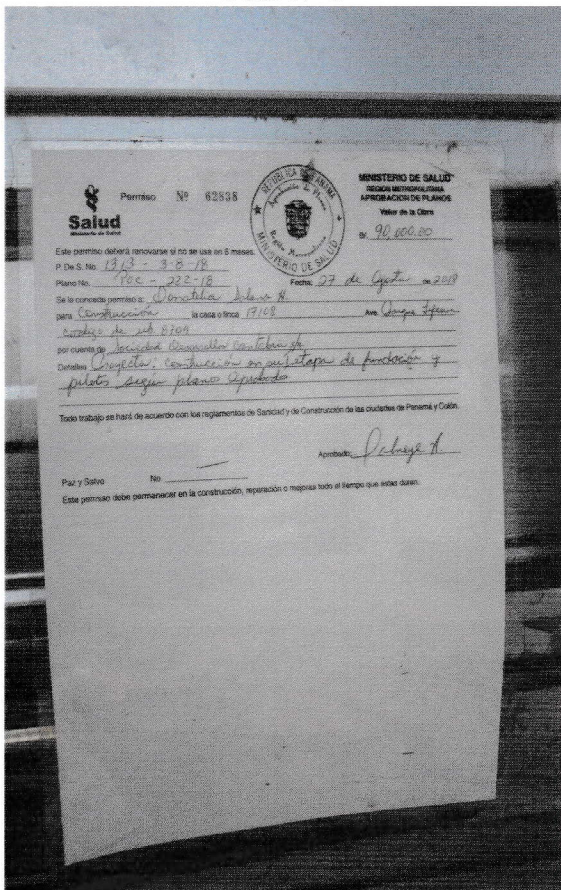 Salud
Ministerio de Salud
Permiso Nº 62838
REPUBLICA DE PANAMA
Aprobación de Planos
Región Metropolitana
MINISTERIO DE SALUD
MINISTERIO DE SALUD
REGION METROPOLITANA
APROBACION DE PLANOS
Valor de la Obra
B/. 90,000.00
Este permiso deberá renovarse si no se usa en 6 meses.
P. De S. No. 1313 - 3-8-18
Plano No. POC - 222-18 Fecha: 27 de Agosto de 2018
Se le concede permiso a: Donatilia H.
para Construcción la casa o finca 17108 Ave.
codigo de ub 8708
por cuenta de Sociedad Desarrollo Cantabria SA
Detalles Proyecto: construcción en su etapa de fundación y
pilotes segun planos aprobados
Todo trabajo se hará de acuerdo con los reglamentos de Sanidad y de Construcción de las ciudades de Panamá y Colón.
Aprobado:
Paz y Salvo No.
Este permiso debe permanecer en la construcción, reparación o mejoras todo el tiempo que estas duren.